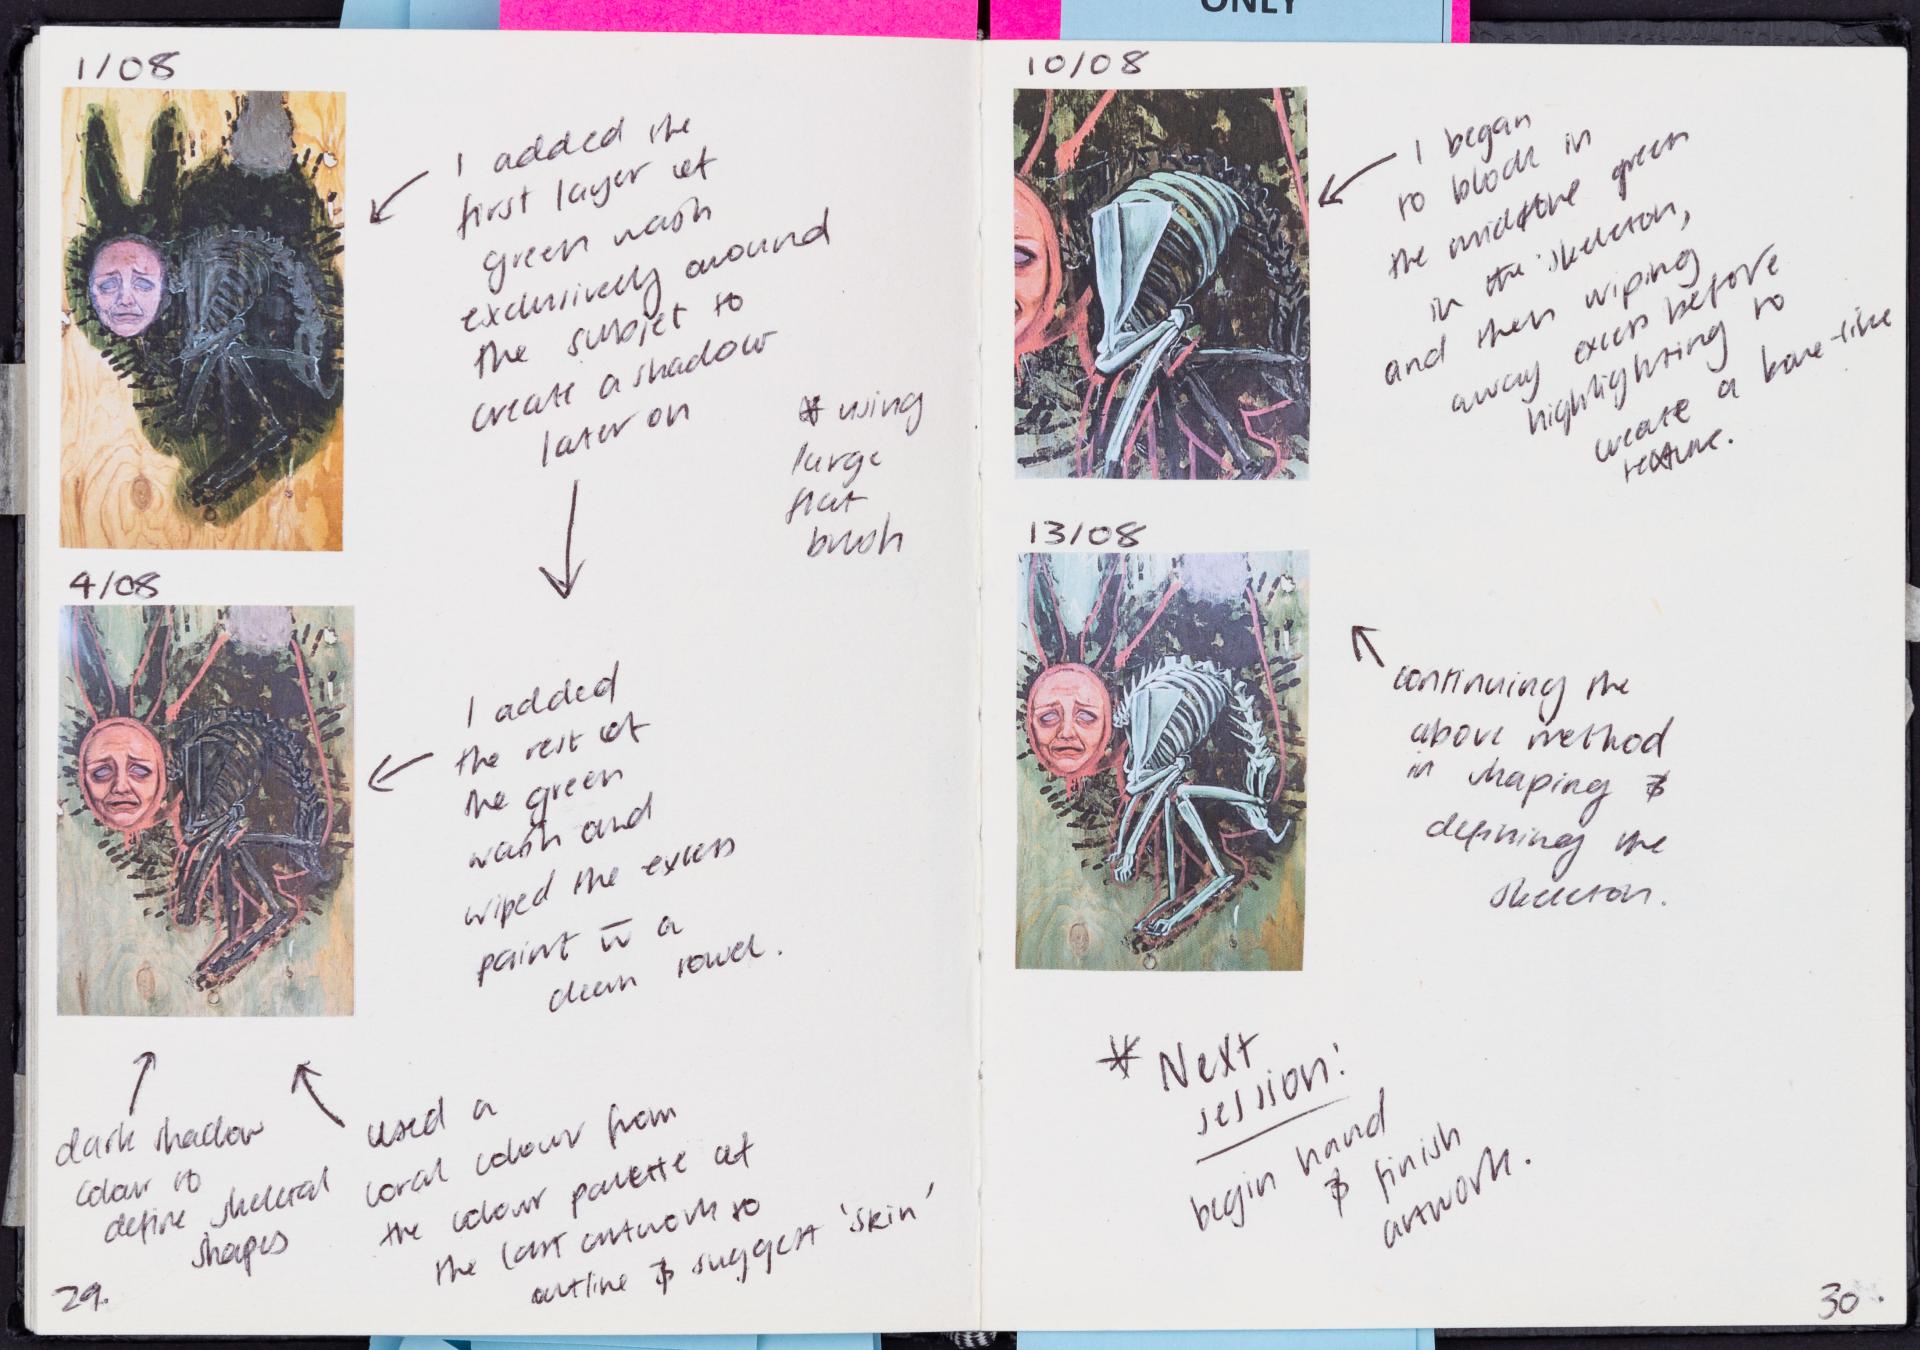 ONLY
1/08
I added the
first layer of
green wash
exclusively around
the subject to
create a shadow
later on
* using
large
flat
brush
4/08
I added
the rest of
the green
wash and
wiped the excess
paint w̄ a
clean towel.
dark shadow
colour to
define skeletal
shapes
used a
coral colour from
the colour palette of
the last artwork to
outline & suggest 'skin'
29.
10/08
I began
to block in
the midtone green
in the skeleton,
and then wiping
away excess before
highlighting to
create a bone-like
texture.
13/08
continuing the
above method
in shaping &
defining the
skeleton.
* Next
session:
begin hand
& finish
artwork.
30.